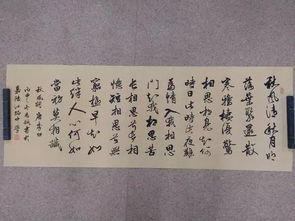 秋風清秋月明
落葉聚還散
寒鴉棲復驚
相思相見知何
日此時此夜難
為情入我相思
門知我相思苦
長相思兮長相
憶短相思兮無
窮極早知如
此絆人心何如
當初莫相識
秋風詞 唐李白
丙申冬
中學